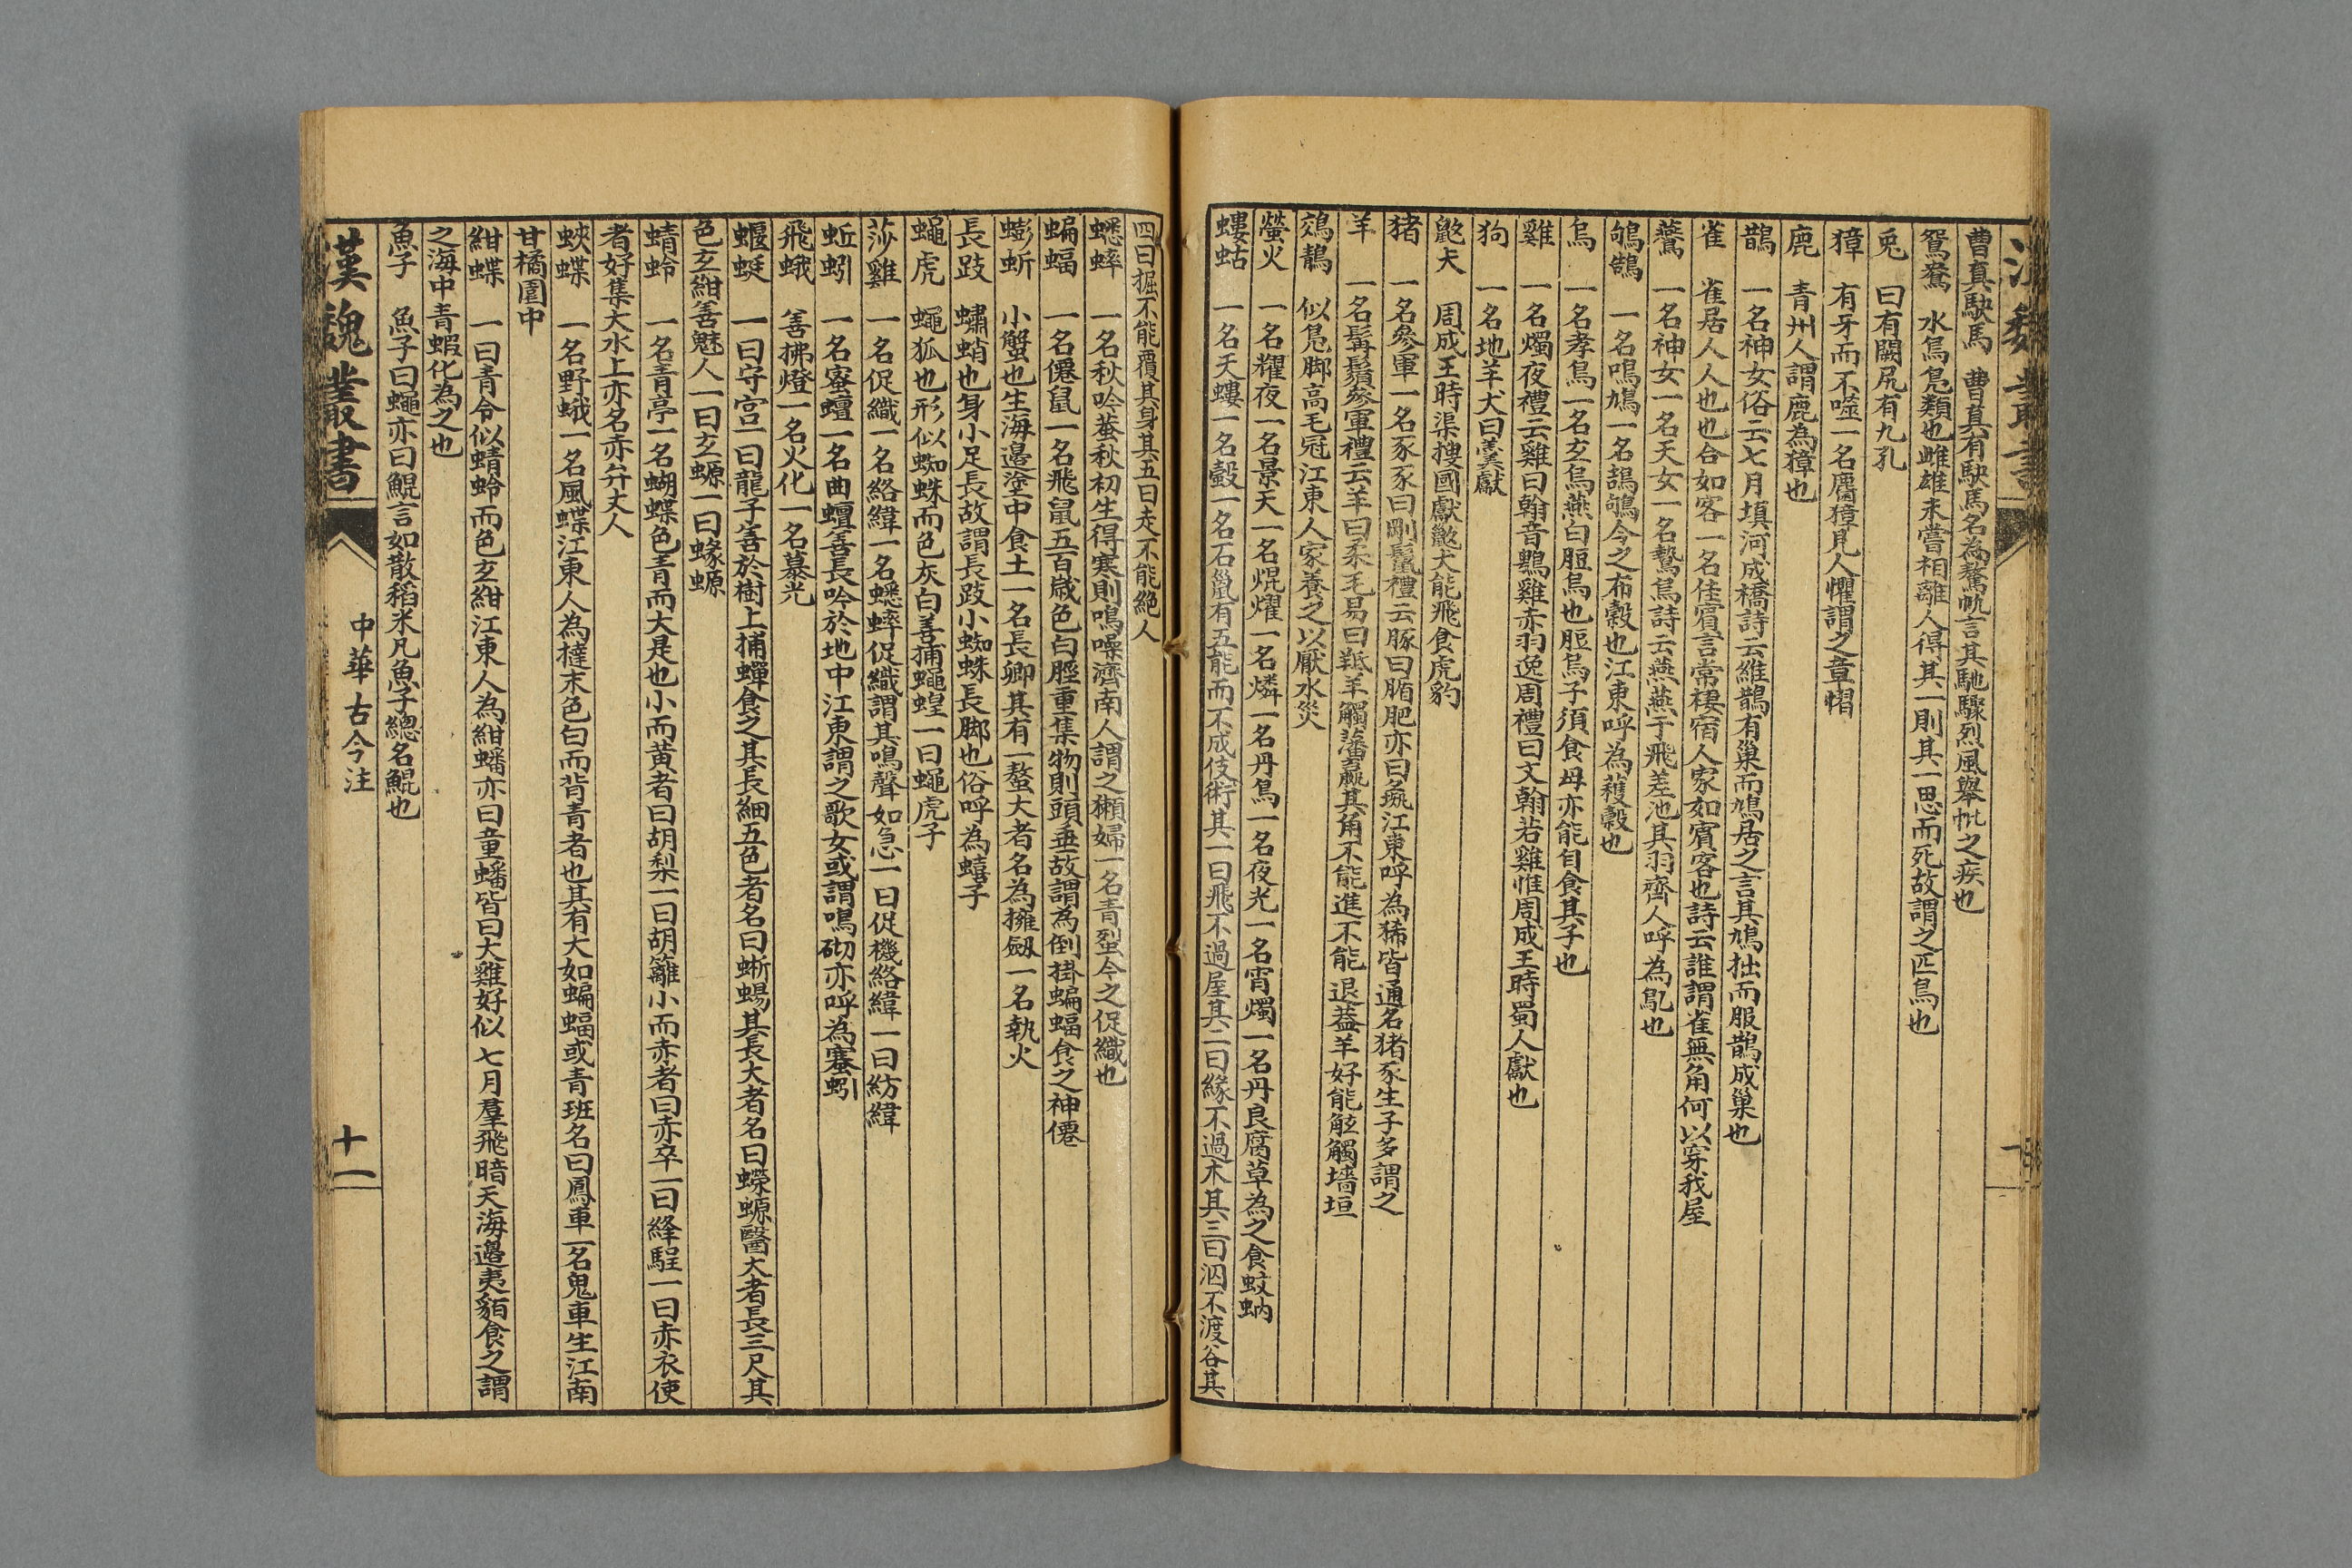 曹真駃馬　曹真有駃馬名為驚帆言其馳驟烈風舉帆之疾也
鴛鴦　水鳥鳧類也雌雄未嘗相離人得其一則其一思而死故謂之匹鳥也
兎　曰有闕尻有九孔
獐　有牙而不噬一名麕獐見人懼謂之章慴
鹿　青州人謂鹿為獐也
鵲　一名神女俗云七月填河成橋詩云維鵲有巢而鳩居之言其鳩拙而服鵲成巢也
雀　雀居人人也也合如客一名佳賓言常棲宿人家如賓客也詩云誰謂雀無角何以穿我屋
鷰　一名神女一名天女一名鷙鳥詩云燕燕于飛差池其羽齊人呼為鳦也
鳲鵠　一名鳴鳩一名鴶鳲今之布穀也江東呼為穫穀也
烏　一名孝烏一名玄烏燕白脰烏也脰烏子須食母亦能自食其子也
雞　一名燭夜禮云雞曰翰音鷝雞赤羽逸周禮曰文翰若雞惟周成王時蜀人獻也
狗　一名地羊犬曰羹獻
䶂犬　周成王時渠搜國獻䶂犬能飛食虎豹
猪　一名參軍一名豕豕曰剛鬣禮云豚曰腯肥亦曰彘江東呼為豨皆通名猪豕生子多謂之
羊　一名髯鬚參軍禮云羊曰柔毛易曰羝羊觸藩羸其角不能進不能退葢羊好能觝觸墻垣
鵁鶄　似鳧脚高毛冠江東人家養之以厭水災
螢火　一名耀夜一名景天一名熠燿一名燐一名丹鳥一名夜光一名宵燭一名丹良腐草為之食蚊蚋
螻蛄　一名天螻一名螜一名石鼠有五能而不成伎術其一曰飛不過屋其二曰緣不過木其三曰泅不渡谷其
四曰掘不能覆其身其五曰走不能絕人
蟋蟀　一名秋吟蛬秋初生得寒則鳴噪濟南人謂之獺婦一名青蛚今之促織也
蝙蝠　一名僊鼠一名飛鼠五百歲色白脛重集物則頭垂故謂為倒掛蝙蝠食之神僊
蟛蚏　小蟹也生海邉塗中食土一名長卿其有一螯大者名為擁劔一名執火
長跂　蠨蛸也身小足長故謂長跂小蜘蛛長脚也俗呼為蟢子
蠅虎　蠅狐也形似蜘蛛而色灰白善捕蠅蝗一曰蠅虎子
莎雞　一名促織一名絡緯一名蟋蟀促織謂其鳴聲如急一曰促機絡緯一曰紡緯
蚯蚓　一名蜜蟺一名曲蟺善長吟於地中江東謂之歌女或謂鳴砌亦呼為蹇蚓
飛蛾　善拂燈一名火化一名慕光
蝘蜓　一曰守宮一曰龍子善於樹上捕蟬食之其長細五色者名曰蜥蜴其長大者名曰蠑螈醫大者長三尺其
色玄紺善魅人一曰玄螈一曰蝝螈
蜻蛉　一名青亭一名蝴蝶色青而大是也小而黃者曰胡梨一曰胡籬小而赤者曰赤卒一曰絳騶一曰赤衣使
者好集大水上亦名赤弁丈人
蛺蝶　一名野蛾一名風蝶江東人為撻末色白而背青者也其有大如蝙蝠或青班名曰鳳車一名鬼車生江南
甘橘園中
紺蝶　一曰青令似蜻蛉而色玄紺江東人為紺蟠亦曰童蟠皆曰大雞好似七月羣飛暗天海邉夷貊食之謂
之海中青蝦化為之也
魚子　魚子曰蠅亦曰鯤言如散稻米凡魚子總名鯤也
漢魏叢書　中華古今注　十一